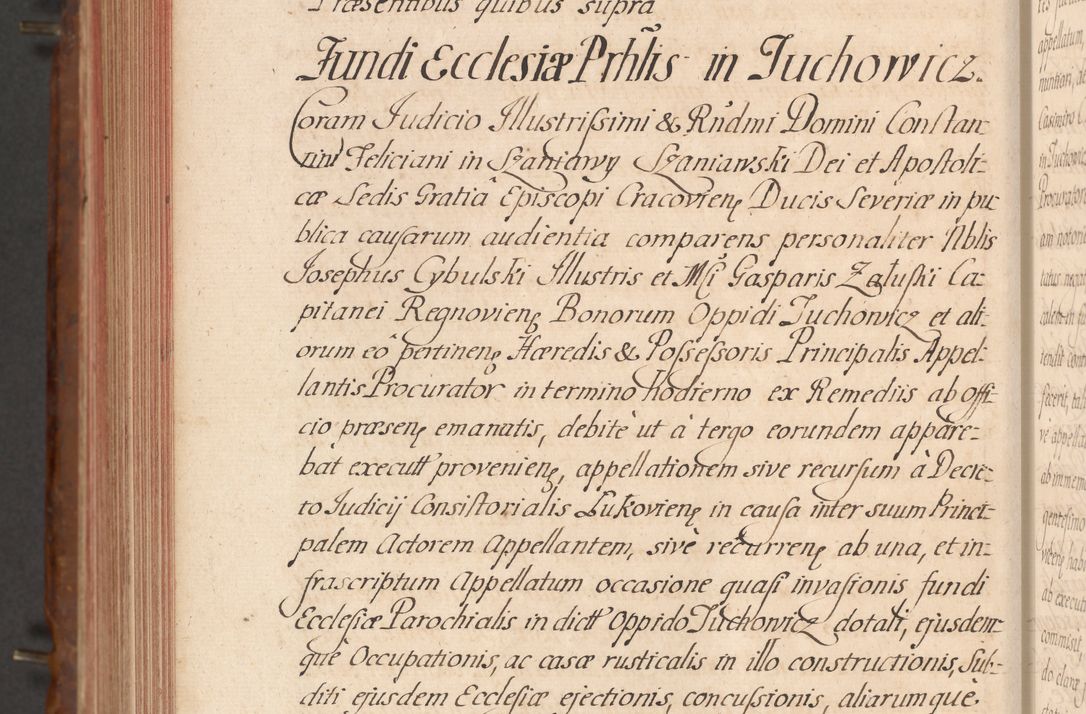 Præsentibus quibus supra
Fundi Ecclesiæ Prhlis in Tuchowicz.
Coram Judicio Illustrissimi & Rndmi Domini Constan-
tini Feliciani in Szaniawy Szaniawski Dei et Apostoli-
cæ Sedis Gratia Episcopi Cracovien Ducis Severiæ in pu-
blica causarum audientia comparens personaliter Nblis
Josephus Cybulski Illustris et Mci Gasparis Załuski Ca-
pitanei Regnovien Bonorum Oppidi Tuchowicz et ali-
orum eo pertinen Hæredis & Possessoris Principalis Appel-
lantis Procurator in termino hodierno ex Remediis ab offi-
cio præsen emanatis, debitè ut à tergo eorundem appare-
bat executt provenien, appellationem sive recursum à Decre-
to Judicij Consistorialis Lukovien in causa inter suum Princi-
palem Actorem Appellantem, sivè recurren ab una, et in-
frascriptum Appellatum occasione quasi invasionis fundi
Ecclesiæ Parochialis in dictt Oppido Tuchowicz dotati, ejusdem-
què Occupationis, ac casæ rusticalis in illo constructionis, Sub-
diti ejusdem Ecclesiæ ejectionis, concussionis, aliarumquè